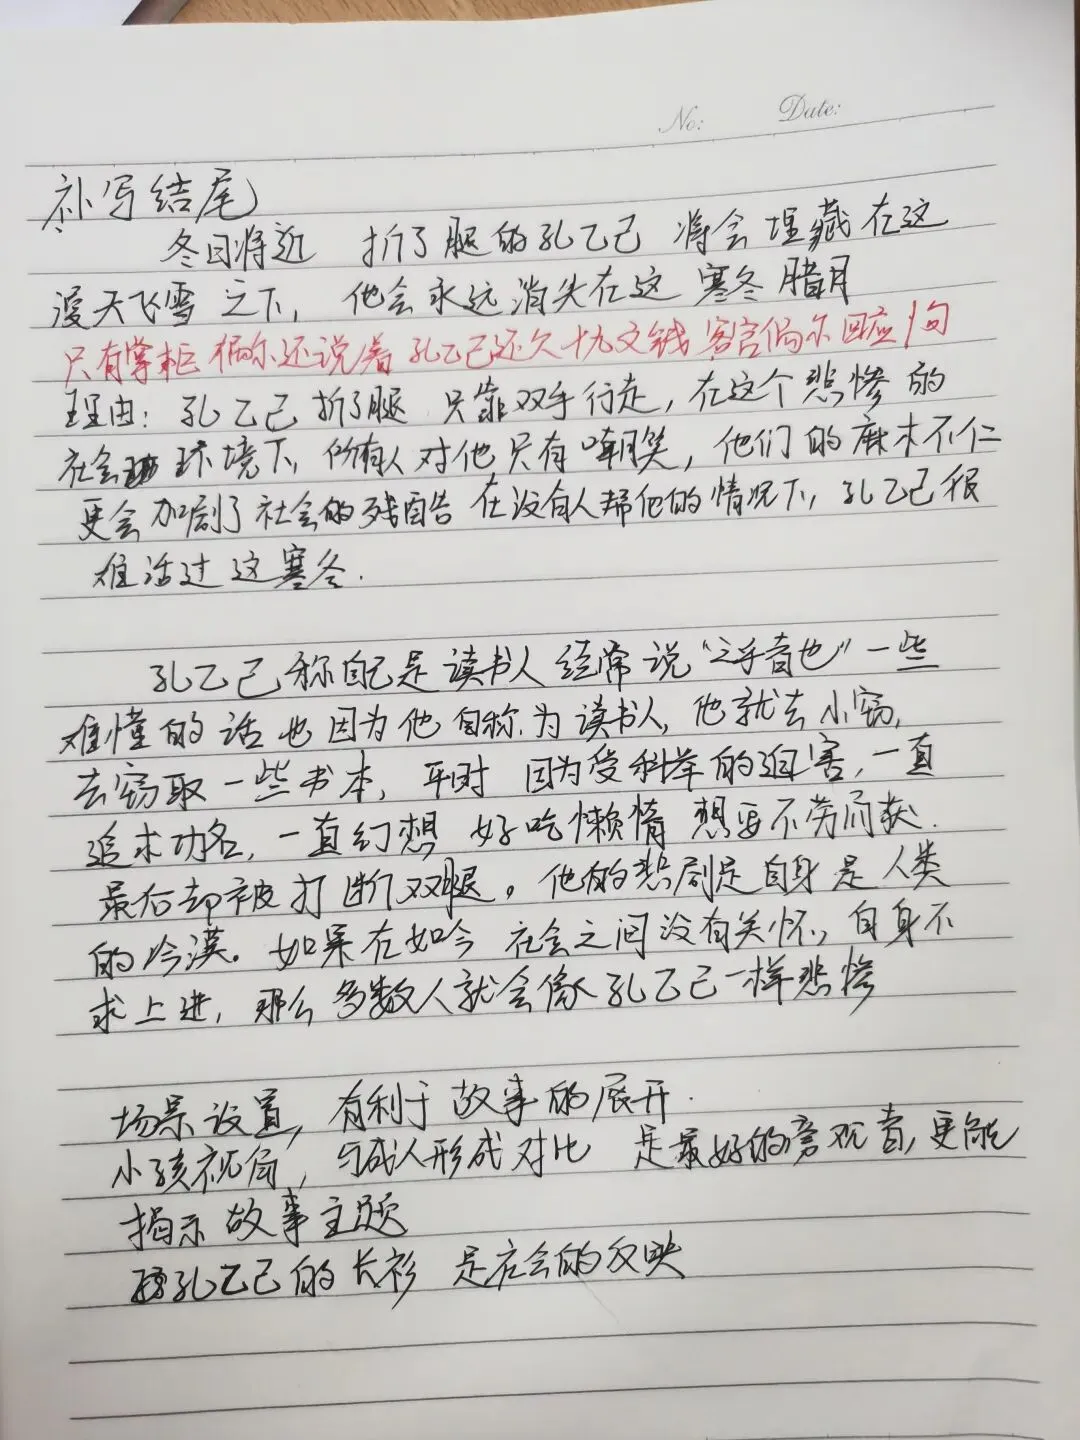 No:
Date:
补写结尾
冬日将近 折了腿的孔乙己 将会埋藏在这
漫天飞雪之下, 他会永远消失在这 寒冬腊月
只有掌柜偶尔还说着孔乙己还欠十九文钱 客官偶尔回应1句
理由: 孔乙己折了腿 只靠双手行走, 在这个悲惨的
社会环境下, 所有人对他只有嘲笑, 他们的麻木不仁
更会加剧了社会的残酷 在没有人帮他的情况下, 孔乙己很
难活过这寒冬.
孔乙己称自己是读书人 经常说“之乎者也”一些
难懂的话也因为他自称为读书人, 他就去小窃,
去窃取一些书本, 平时 因为受科举的迫害, 一直
追求功名, 一直幻想 好吃懒惰 想要不劳而获.
最后却被打断双腿。他的悲剧是自身是人类
的冷漠。如果在如今 社会之间没有关怀, 自身不
求上进, 那么多数人就会像孔乙己一样悲惨
场景设置, 有利于故事的展开.
小孩视角, 与成人形成对比 是最好的旁观者, 更能
揭示故事主题
孔乙己的长衫 是社会的反映